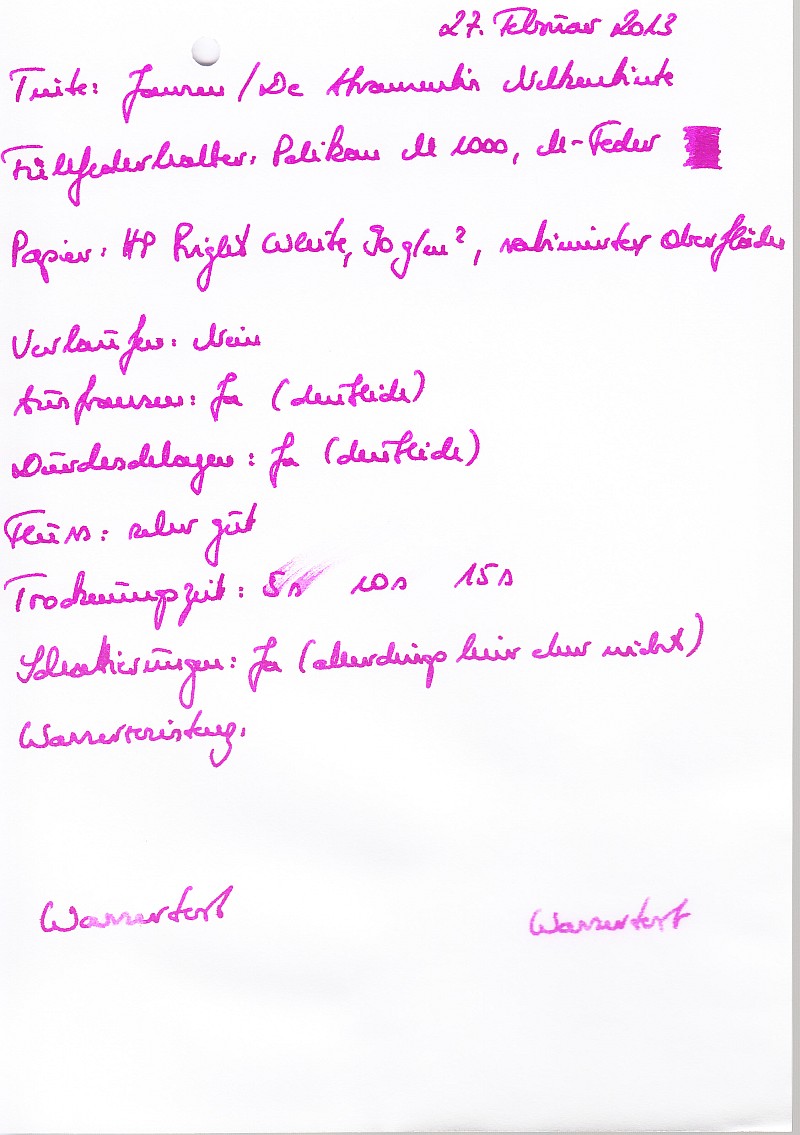 27. Februar 2013
Tinte: Jansen / De Atramentis Nelkentinte
Füllfederhalter: Pelikan M 1000, M-Feder
Papier: HP Bright White, 90 g/m², satinierter Oberfläche
Verlaufen: Nein
Ausfransen: Ja (deutlich)
Durchschlagen: Ja (deutlich)
Fluss: sehr gut
Trocknungszeit: 5s 10s 15s
Schattierungen: Ja (allerdings hier eher nicht)
Wasserresistenz:
Wassertest Wassertest